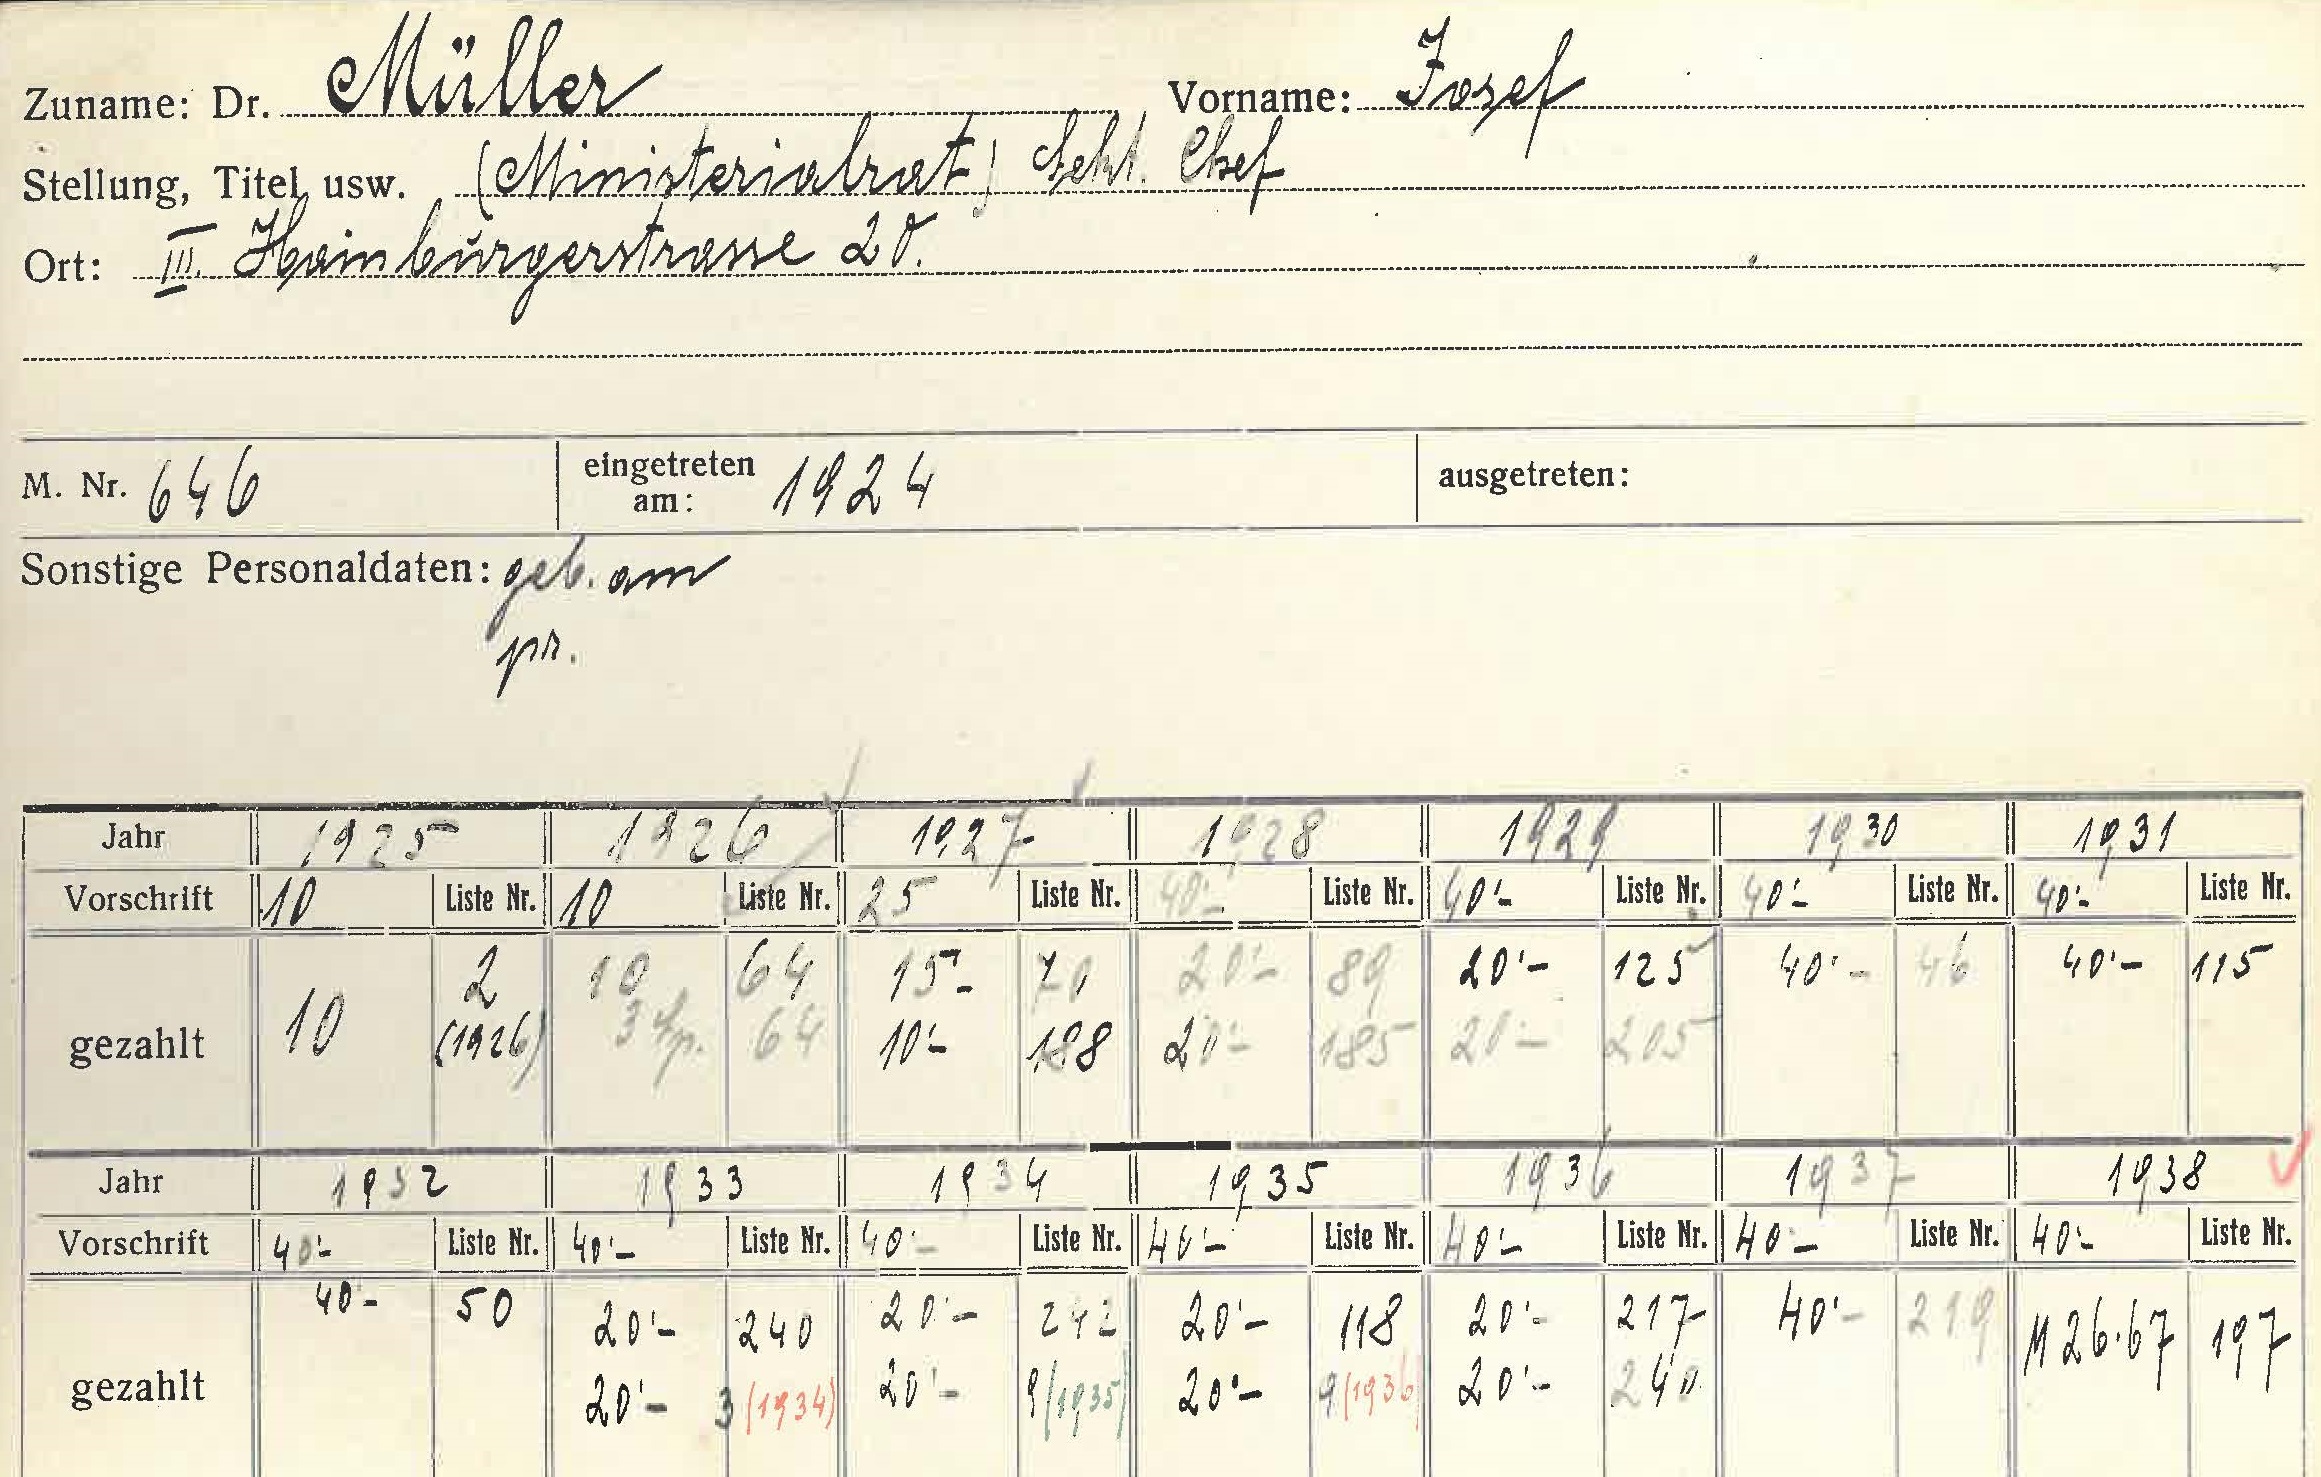 Zuname: Dr. Müller Vorname: Josef
Stellung, Titel usw. (Ministerialrat) Sekt. Chef
Ort: III. Hainburgerstrasse 20.
M. Nr. 646 eingetreten am: 1924 ausgetreten:
Sonstige Personaldaten: geb. am
pr.
Jahr 1925 1926 1927 1928 1929 1930 1931
Vorschrift 10 Liste Nr. 10 Liste Nr. 25 Liste Nr. 40'- Liste Nr. 40'- Liste Nr. 40'- Liste Nr. 40'- Liste Nr.
gezahlt 10 2 10 64 15'- 70 20'- 89 20'- 125 40'- 46 40'- 115
(1926) 3 64 10'- 188 20'- 185 20'- 205
Jahr 1932 1933 1934 1935 1936 1937 1938
Vorschrift 40'- Liste Nr. 40'- Liste Nr. 40'- Liste Nr. 40'- Liste Nr. 40'- Liste Nr. 40- Liste Nr. 40'- Liste Nr.
gezahlt 40'- 50 20'- 240 20'- 242 20'- 118 20'- 217 40'- 219 M 26.67 197
20'- 3 (1934) 20'- 9 (1935) 20'- 9 (1936) 20'- 240